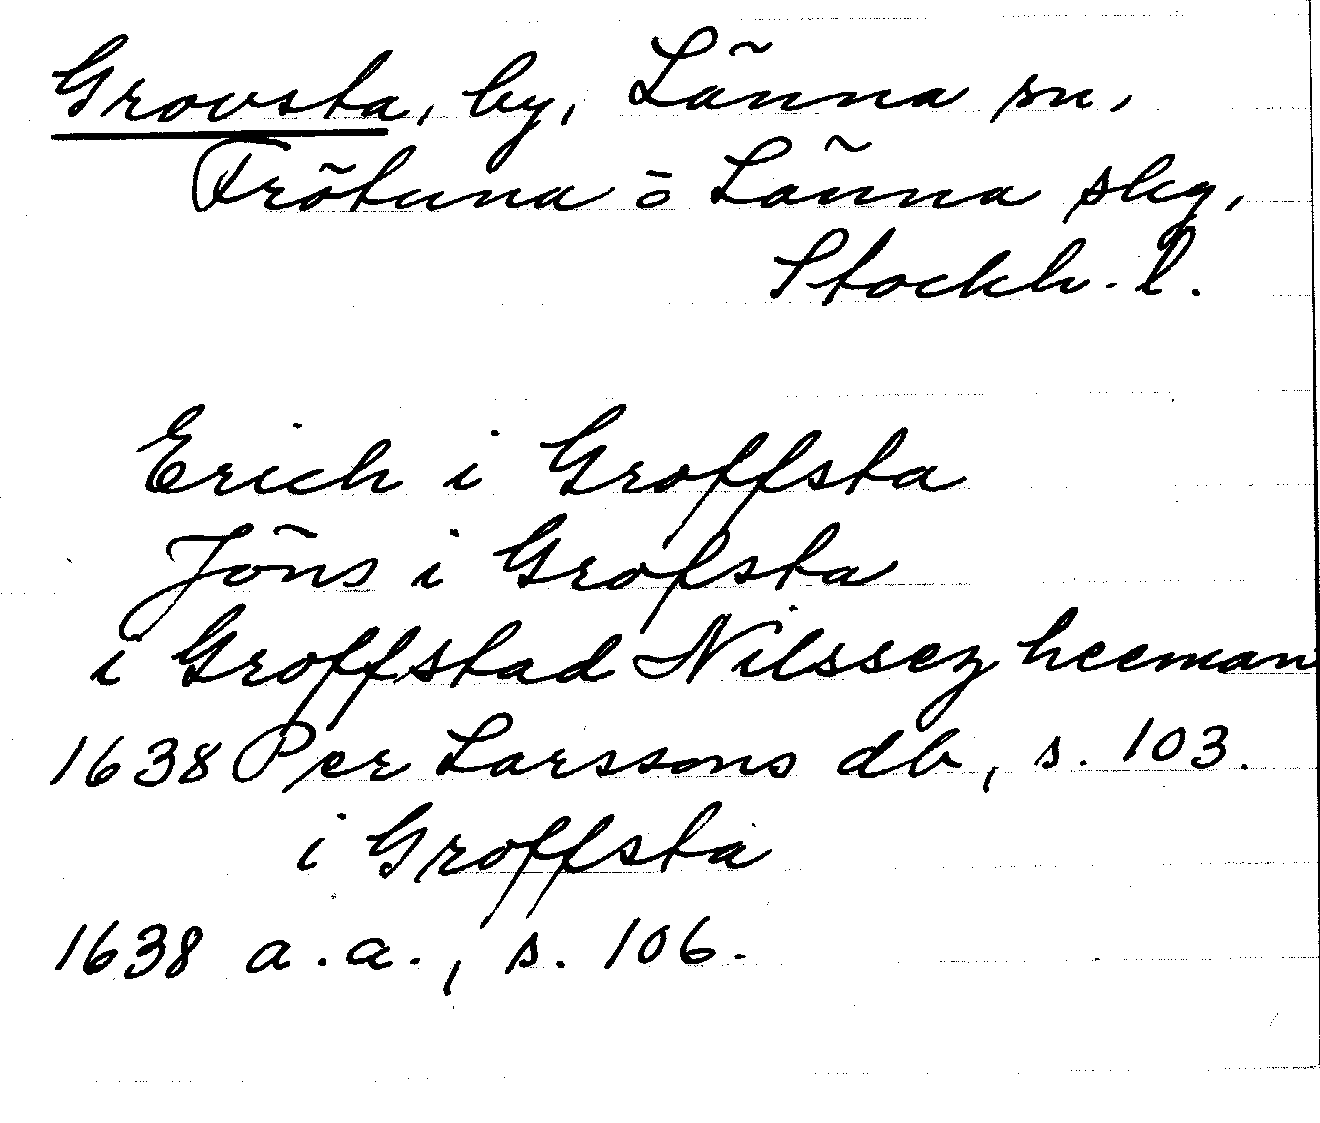 Grovsta, by, Länna sn,
Frötuna o Länna skg,
Stockh. l.
Erich i Groffsta
Jöns i Grofsta
i Groffstad Nilssez heeman
1638 Per Larssons db, s. 103.
i Groffsta
1638 a.a., s. 106.